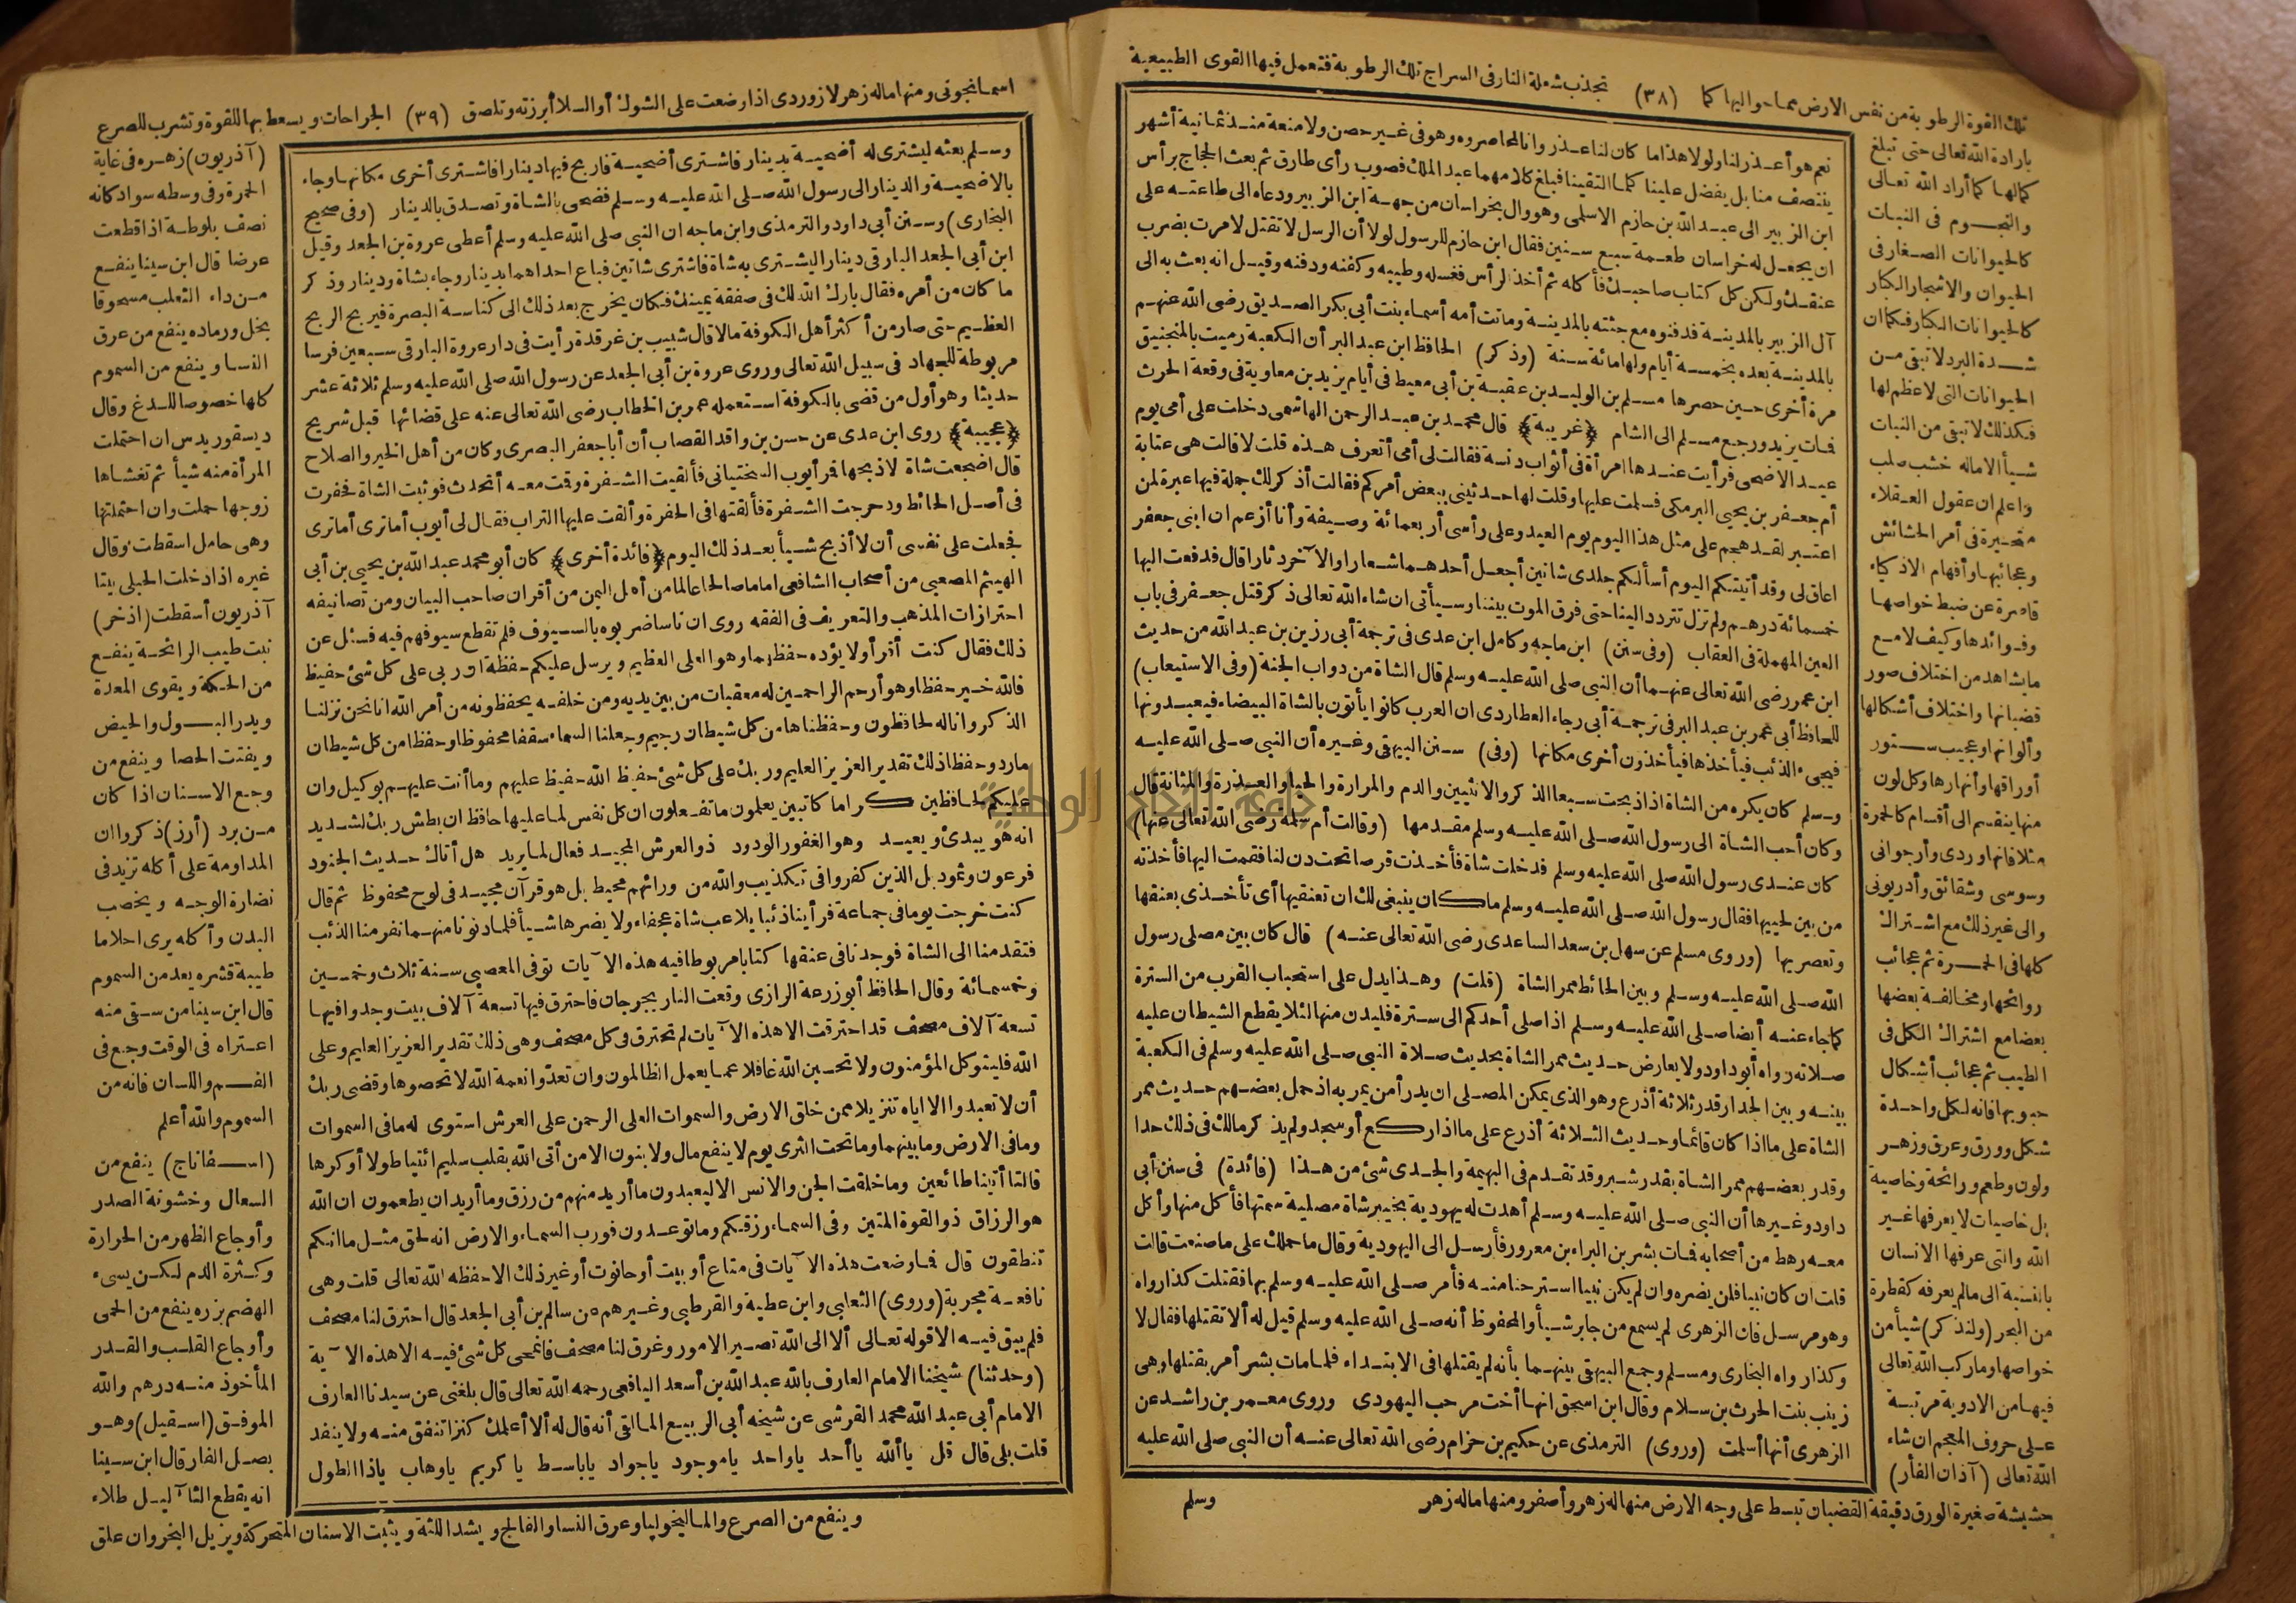 تلك القوة الرطوبة من نفس الارض مما حواليها كما (٣٨) تجذب شعلة النار فى السراج تلك الرطوبة فتعمل فيها القوى الطبيعية
بارادة الله تعالى حتى تبلغ
كمالها كما أراد الله تعالى
والنجوم فى النبات
كالحيوانات الصغار فى
الحيوان والاشجار الكبار
كالحيوانات الكبار فكما ان
شدة البرد لا تبقى من
الحيوانات التى لا عظم لها
فكذلك لا تبقى من النبات
شيأ الا ماله خشب صلب
واعلم ان عقول العقلاء
متحيرة فى أمر الحشائش
وعجائبها وأفهام الاذكياء
قاصرة عن ضبط خواصها
وفوائدها وكيف لا مع
ما يشاهد من اختلاف صور
قضبانها واختلاف أشكالها
وألوانها وعجيب ستور
أوراقها وأنهارها وكل لون
منها ينقسم الى أقسام كالحمرة
مثلا فانها وردى وأرجوانى
وسوسى وشقائق وأدريونى
والى غير ذلك مع اشتراك
كلها فى الحمرة ثم عجائب
روائحها ومخالفة بعضها
بعضا مع اشتراك الكل فى
الطيب ثم عجائب أشكال
حبوبها فانه لكل واحدة
شكل وورق وعرق وزهر
ولون وطعم ورائحة وخاصية
بل خاصيات لا يعرفها غير
الله والتى عرفها الانسان
بالنسبة الى ما لم يعرفه كقطرة
من البحر (ولنذكر) شيأ من
خواصها وما ركب الله تعالى
فيها من الادوية مرتبة
على حروف المعجم ان شاء
الله تعالى (آذان الفأر)
حشيشة صغيرة الورق دقيقة القضبان تبسط على وجه الارض منها له زهر وأصفر ومنها ماله زهر
نعم هو أعذر لنا ولولا هذا ما كان لنا عذر وانا لمحاصروه وهو فى غير حصن ولا منعة منذ ثمانية أشهر
ينتصف منا بل يفضل علينا كلما التقينا فبلغ كلامهما عبد الملك فصوب رأى طارق ثم بعث الحجاج برأس
ابن الزبير الى عبد الله بن حازم الاسلمى وهو وال بخراسان من جهة ابن الزبير ودعاه الى طاعته على
ان يجعل له خراسان طعمة سبع سنين فقال ابن حازم للرسول لولا أن الرسل لا تقتل لامرت بضرب
عنقك ولكن كل كتاب صاحبك فأكله ثم أخذ الرأس فغسله وطيبه وكفنه ودفنه وقيل انه بعث به الى
آل الزبير بالمدينة فدفنوه مع جثته بالمدينة وماتت أمه أسماء بنت أبى بكر الصديق رضى الله عنهم
بالمدينة بعده بخمسة أيام ولها مائة سنة (وذكر) الحافظ ابن عبد البر أن الكعبة رميت بالمنجنيق
مرة أخرى حين حصرها مسلم بن الوليد بن عقبة بن أبى معيط فى أيام يزيد بن معاوية فى وقعة الحرث
فمات يزيد ورجع مسلم الى الشام ﴿غريبة﴾ قال محمد بن عبد الرحمن الهاشمى دخلت على أمى يوم
عيد الاضحى فرأيت عندها امرأة فى أثواب دنسة فقالت لى أمى أتعرف هذه قلت لا قالت هى عتابة
أم جعفر بن يحيى البرمكى فسلمت عليها وقلت لها حدثينى ببعض أمركم فقالت أذكر لك جملة فيها عبرة لمن
اعتبر لقد هجم على مثل هذا اليوم يوم العيد وعلى رأسى أربعمائة وصيفة وأنا أزعم ان ابنى جعفر
اعاق لى وقد أتيتكم اليوم أسألكم جلدى شاتين أجعل أحدهما شعارا والآخر دثارا قال فدفعت اليها
خمسمائة درهم ولم تزل تتردد الينا حتى فرق الموت بيننا وسيأتى ان شاء الله تعالى ذكر قتل جعفر فى باب
العين المهملة فى العقاب (وفى سنن) ابن ماجه وكامل ابن عدى فى ترجمة أبى رزين بن عبد الله من حديث
ابن عمر رضى الله تعالى عنهما أن النبى صلى الله عليه وسلم قال الشاة من دواب الجنة (وفى الاستيعاب)
للحافظ أبى عمر بن عبد البر فى ترجمة أبى رجاء العطاردى ان العرب كانوا يأتون بالشاة البيضاء فيعبدونها
فيجىء الذئب فيأخذها فيأخذون أخرى مكانها (وفى) سنن البيهقى وغيره أن النبى صلى الله عليه
وسلم كان يكره من الشاة اذا ذبحت سبعا الذكر والانثيين والدم والمرارة والحيا والعذرة والمثانة قال
وكان أحب الشاة الى رسول الله صلى الله عليه وسلم مقدمها (وقالت أم سلمة رضى الله تعالى عنها)
كان عندى رسول الله صلى الله عليه وسلم فدخلت شاة فأخذت قرصا تحت دن لنا فقمت اليها فأخذته
من بين لحييها فقال رسول الله صلى الله عليه وسلم ما كان ينبغى لك ان تعنقيها أى تأخذى بعنقها
وتعصريها (وروى مسلم عن سهل بن سعد الساعدى رضى الله تعالى عنه) قال كان بين مصلى رسول
الله صلى الله عليه وسلم وبين الحائط ممر الشاة (قلت) وهذا يدل على استحباب القرب من السترة
كما جاء عنه أيضا صلى الله عليه وسلم اذا صلى أحدكم الى سترة فليدن منها لئلا يقطع الشيطان عليه
صلاته رواه أبو داود ولا يعارض حديث ممر الشاة بحديث صلاة النبى صلى الله عليه وسلم فى الكعبة
بينه وبين الجدار قدر ثلاثة أذرع وهو الذى يمكن المصلى ان يدرأ من يمر به اذ حمل بعضهم حديث ممر
الشاة على ما اذا كان قائما وحديث الثلاثة أذرع على ما اذا ركع أو سجد ولم يذكر مالك فى ذلك حدا
وقدر بعضهم ممر الشاة بقدر شبر وقد تقدم فى البهيمة والجدى شئ من هذا (فائدة) فى سنن أبى
داود وغيرها أن النبى صلى الله عليه وسلم أهدت له يهودية بخيبر شاة مصلية سمتها فأكل منها وأكل
معه رهط من أصحابه فمات بشر بن البراء بن معرور فأرسل الى اليهودية وقال ما حملك على ما صنعت قالت
قلت ان كان نبيا فلن يضره وان لم يكن نبيا استرحنا منه فأمر صلى الله عليه وسلم بها فقتلت كذا رواه
وهو مرسل فان الزهرى لم يسمع من جابر شيأ والمحفوظ أنه صلى الله عليه وسلم قيل له ألا تقتلها فقال لا
وكذا رواه البخارى ومسلم وجمع البيهقى بينهما بأنه لم يقتلها فى الابتداء فلما مات بشر أمر بقتلها وهى
زينب بنت الحرث بن سلام وقال ابن اسحق انها أخت مرحب اليهودى وروى معمر بن راشد عن
الزهرى أنها أسلمت (وروى) الترمذى عن حكيم بن حزام رضى الله تعالى عنه أن النبى صلى الله عليه
وسلم
اسمانجونى ومنها ماله زهر لازوردى اذا وضعت على الشوك أو السلا أبرزته وتلصق (٣٩) الجراحات ويسعط بها للقوة وتشرب للصرع
وسلم بعثه ليشترى له أضحية بدينار فاشترى أضحية فاربح فيها دينارا فاشترى أخرى مكانها وجاء
بالاضحية والدينار الى رسول الله صلى الله عليه وسلم فضحى بالشاة وتصدق بالدينار (وفى صحيح
البخارى) وسنن أبى داود والترمذى وابن ماجه ان النبى صلى الله عليه وسلم أعطى عروة بن الجعد وقيل
ابن أبى الجعد البارقى دينارا ليشترى به شاة فاشترى شاتين فباع احداهما بدينار وجاء بشاة ودينار وذكر
ما كان من أمره فقال بارك الله لك فى صفقة يمينك فكان يخرج بعد ذلك الى كناسة البصرة فيربح الربح
العظيم حتى صار من أكثر أهل الكوفة مالا قال شبيب بن غرقدة رأيت فى دار عروة البارقى سبعين فرسا
مربوطة للجهاد فى سبيل الله تعالى وروى عروة بن أبى الجعد عن رسول الله صلى الله عليه وسلم ثلاثة عشر
حديثا وهو أول من قضى بالكوفة استعمله عمر بن الخطاب رضى الله تعالى عنه على قضائها قبل شريح
﴿عجيبة﴾ روى ابن عدى عن حسن بن واقد القصاب أن أبا جعفر البصرى وكان من أهل الخير والصلاح
قال اضجعت شاة لاذبحها فمر أيوب السختيانى فألقيت الشفرة وقمت معه أتحدث فوثبت الشاة فحفرت
فى أصل الحائط ودحرجت الشفرة فألقتها فى الحفرة وألقت عليها التراب فقال لى أيوب أما ترى أما ترى
فجعلت على نفسى أن لا أذبح شيأ بعد ذلك اليوم ﴿فائدة أخرى﴾ كان أبو محمد عبد الله بن يحيى بن أبى
الهيثم المصعبى من أصحاب الشافعى اماما صالحا عالما من أهل اليمن من أقران صاحب البيان ومن تصانيفه
احترازات المذهب والتعريف فى الفقه روى ان ناسا ضربوه بالسيوف فلم تقطع سيوفهم فيه فسئل عن
ذلك فقال كنت أقرأ ولا يؤده حفظهما وهو العلى العظيم ويرسل عليكم حفظة ان ربى على كل شئ حفيظ
فالله خير حفظا وهو أرحم الراحمين له معقبات من بين يديه ومن خلفه يحفظونه من أمر الله انا نحن نزلنا
الذكر وانا له لحافظون وحفظناها من كل شيطان رجيم وجعلنا السماء سقفا محفوظا وحفظا من كل شيطان
مارد وحفظا ذلك تقدير العزيز العليم وربك على كل شئ حفيظ الله حفيظ عليهم وما أنت عليهم بوكيل وان
عليكم لحافظين كراما كاتبين يعلمون ما تفعلون ان كل نفس لما عليها حافظ ان بطش ربك لشديد
انه هو يبدئ ويعيد وهو الغفور الودود ذو العرش المجيد فعال لما يريد هل أتاك حديث الجنود
فرعون وثمود بل الذين كفروا فى تكذيب والله من ورائهم محيط بل هو قرآن مجيد فى لوح محفوظ ثم قال
كنت خرجت يوما فى جماعة فرأينا ذئبا يلاعب شاة عجفاء ولا يضرها شيأ فلما دنونا منهما نفر منا الذئب
فتقدمنا الى الشاة فوجدنا فى عنقها كتابا مربوطا فيه هذه الآيات توفى المصعبى سنة ثلاث وخمسين
وخمسمائة وقال الحافظ أبو زرعة الرازى وقعت النار بجرجان فاحترق فيها تسعة آلاف بيت وجدوا فيها
تسعة آلاف مصحف قد احترقت الا هذه الآيات لم تحترق فى كل مصحف وهى ذلك تقدير العزيز العليم وعلى
الله فليتوكل المؤمنون ولا تحسبن الله غافلا عما يعمل الظالمون وان تعدوا نعمة الله لا تحصوها وقضى ربك
أن لا تعبدوا الا اياه تنزيلا ممن خلق الارض والسموات العلى الرحمن على العرش استوى له ما فى السموات
وما فى الارض وما بينهما وما تحت الثرى يوم لا ينفع مال ولا بنون الا من أتى الله بقلب سليم ائتيا طوعا أو كرها
قالتا أتينا طائعين وما خلقت الجن والانس الا ليعبدون ما أريد منهم من رزق وما أريد ان يطعمون ان الله
هو الرزاق ذو القوة المتين وفى السماء رزقكم وما توعدون فورب السماء والارض انه لحق مثل ما انكم
تنطقون قال فما وضعت هذه الآيات فى متاع أو بيت أو حانوت أو غير ذلك الا حفظه الله تعالى قلت وهى
نافعة مجربة (وروى) الثعلبى وابن عطية والقرطبى وغيرهم عن سالم بن أبى الجعد قال احترق لنا مصحف
فلم يبق فيه الا قوله تعالى ألا الى الله تصير الامور وغرق لنا مصحف فانمحى كل شئ فيه الا هذه الآية
(وحدثنا) شيخنا الامام العارف بالله عبد الله بن أسعد اليافعى رحمه الله تعالى قال بلغنى عن سيدنا العارف
الامام أبى عبد الله محمد القرشى عن شيخه أبى الربيع المالقى أنه قال له ألا أعلمك كنزا تنفق منه ولا ينفد
قلت بلى قال قل يا ألله يا أحد يا واحد يا موجود يا جواد يا باسط يا كريم يا وهاب يا ذا الطول
(آذريون) زهره فى غاية
الحمرة وفى وسطه سواد كانه
نصف بلوطة اذا قطعت
عرضا قال ابن سينا ينفع
من داء الثعلب مسحوقا
بخل ورماده ينفع من عرق
النسا وينفع من السموم
كلها خصوصا للدغ وقال
ديسقوريدس ان احتملت
المرأة منه شيأ ثم تغشاها
زوجها حملت وان احتملتها
وهى حامل اسقطت وقال
غيره اذا دخلت الحبلى بيتا
آذريون أسقطت (اذخر)
نبت طيب الرائحة ينفع
من الحكة ويقوى المعدة
ويدر البول والحيض
ويفتت الحصا وينفع من
وجع الاسنان اذا كان
من برد (أرز) ذكروا ان
المداومة على أكله تزيد فى
نضارة الوجه ويخصب
البدن وأكله يرى احلاما
طيبة قشره يعد من السموم
قال ابن سينا من سقى منه
اعتراه فى الوقت وجع فى
الفم واللسان فانه من
السموم والله أعلم
(اسفاناج) ينفع من
السعال وخشونة الصدر
وأوجاع الظهر من الحرارة
وكثرة الدم لكن يسىء
الهضم بزره ينفع من الحمى
وأوجاع القلب والقدر
المأخوذ منه درهم والله
الموفق (اسقيل) وهو
بصل الفار قال ابن سينا
انه يقطع الثآليل طلاء
وينفع من الصرع والماليخوليا وعرق النسا والفالج ويشد اللثة ويثبت الاسنان المتحركة ويزيل البخر وان علق
جامعة النجاح الوطنية